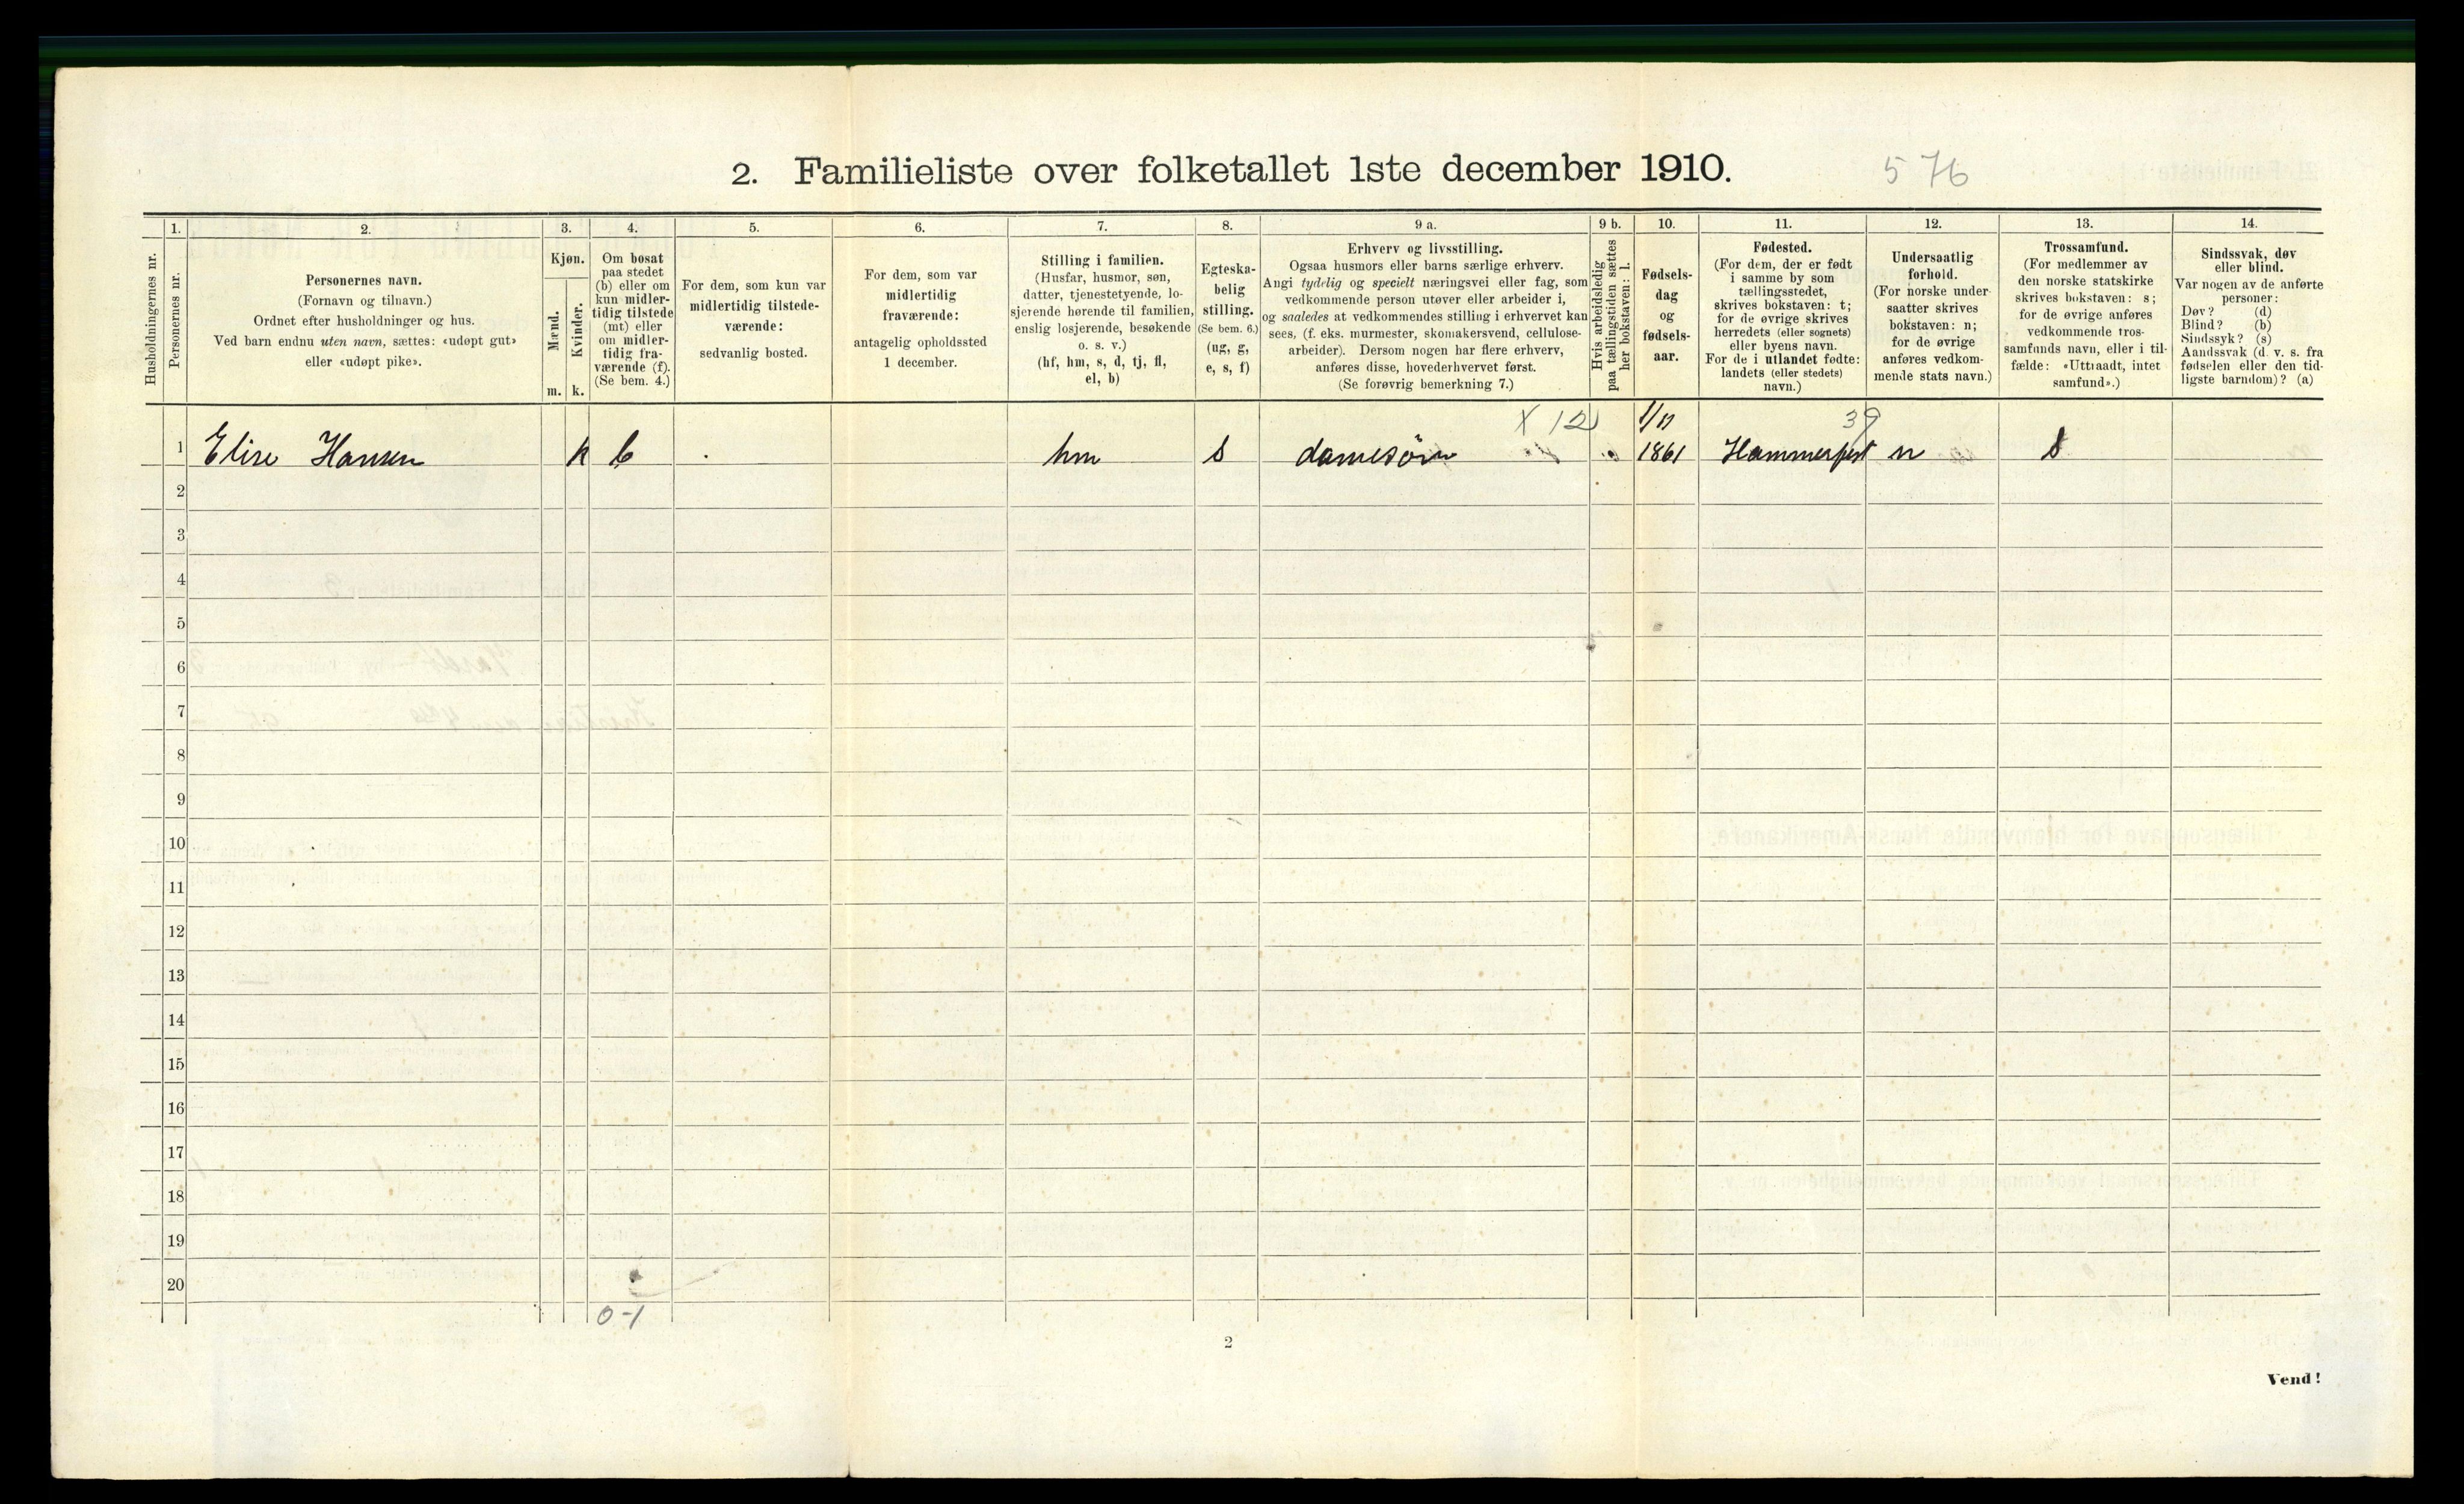 2. Familieliste over folketallet 1ste december 1910.
576
Husholdningernes nr.
1.
Personernes nr.
2.
Personernes navn.
(Fornavn og tilnavn.)
Ordnet efter husholdninger og hus.
Ved barn endnu uten navn, sættes: «udøpt gut»
eller «udøpt pike».
3.
Kjøn.
Mænd.
Kvinder.
m. k.
4.
Om bosat
paa stedet
(b) eller om
kun midler-
tidig tilstede
(mt) eller
om midler-
tidig fra-
værende (f).
(Se bem. 4.)
5.
For dem, som kun var
midlertidig tilstede-
værende:
sedvanlig bosted.
6.
For dem, som var
midlertidig
fraværende:
antagelig opholdssted
1 december.
7.
Stilling i familien.
(Husfar, husmor, søn,
datter, tjenestetyende, lo-
sjerende hørende til familien,
enslig losjerende, besøkende
o. s. v.)
(hf, hm, s, d, tj, fl,
el, b)
8.
Egteska-
belig
stilling.
(Se bem. 6.)
(ug, g,
e, s, f)
9 a.
Erhverv og livsstilling.
Ogsaa husmors eller barns særlige erhverv.
Angi tydelig og specielt næringsvei eller fag, som
vedkommende person utøver eller arbeider i,
og saaledes at vedkommendes stilling i erhvervet kan
sees, (f. eks. murmester, skomakersvend, cellulose-
arbeider). Dersom nogen har flere erhverv,
anføres disse, hovederhvervet først.
(Se forøvrig bemerkning 7.)
9 b.
Hvis arbeidsledig
paa tællingstiden sættes
her bokstaven: l.
10.
Fødsels-
dag
og
fødsels-
aar.
11.
Fødested.
(For dem, der er født
i samme by som
tællingsstedet,
skrives bokstaven: t;
for de øvrige skrives
herredets (eller sognets)
eller byens navn.
For de i utlandet fødte:
landets (eller stedets)
navn.)
12.
Undersaatlig
forhold.
(For norske under-
saatter skrives
bokstaven: n;
for de øvrige
anføres vedkom-
mende stats navn.)
13.
Trossamfund.
(For medlemmer av
den norske statskirke
skrives bokstaven: s;
for de øvrige anføres
vedkommende tros-
samfunds navn, eller i til-
fælde: «Uttraadt, intet
samfund».)
14.
Sindssvak, døv
eller blind.
Var nogen av de anførte
personer:
Døv? (d)
Blind? (b)
Sindssyk? (s)
Aandssvak (d. v. s. fra
fødselen eller den tid-
ligste barndom)? (a)
X 12 39
1 Elise Hansen k b hm s 1861 Hammerfest n s
2
3
4
5
6
7
8
9
10
11
12
13
14
15
16
17
18
19
20
0-1
2
Vend!